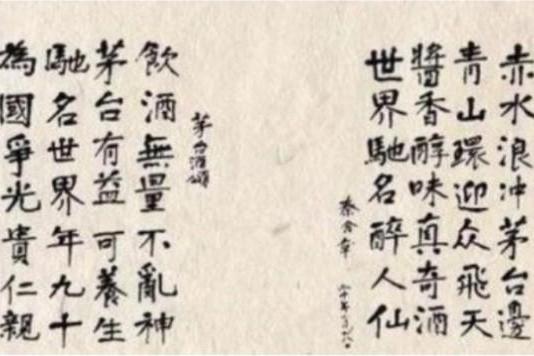 赤水浪冲茅台邊
青山環迎众飛天
醬香醇味真奇酒
世界馳名醉人仙
秦含章
茅台酒頌
飲酒無量不亂神
茅台有益可養生
馳名世界年九十
為國爭光貴仁親